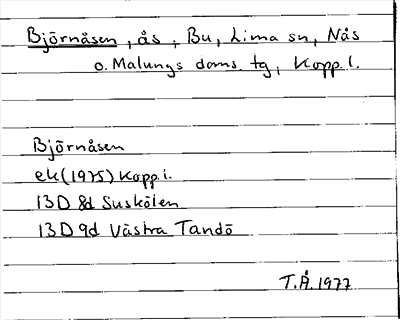 Björnåsen, ås, Bu, Lima sn, Nås
o. Malungs doms. tg, Kopp. l.
Björnåsen
ek (1975) Kopp. l.
13D 8d Suskölen
13D 9d Västra Tandö
T.Å. 1977